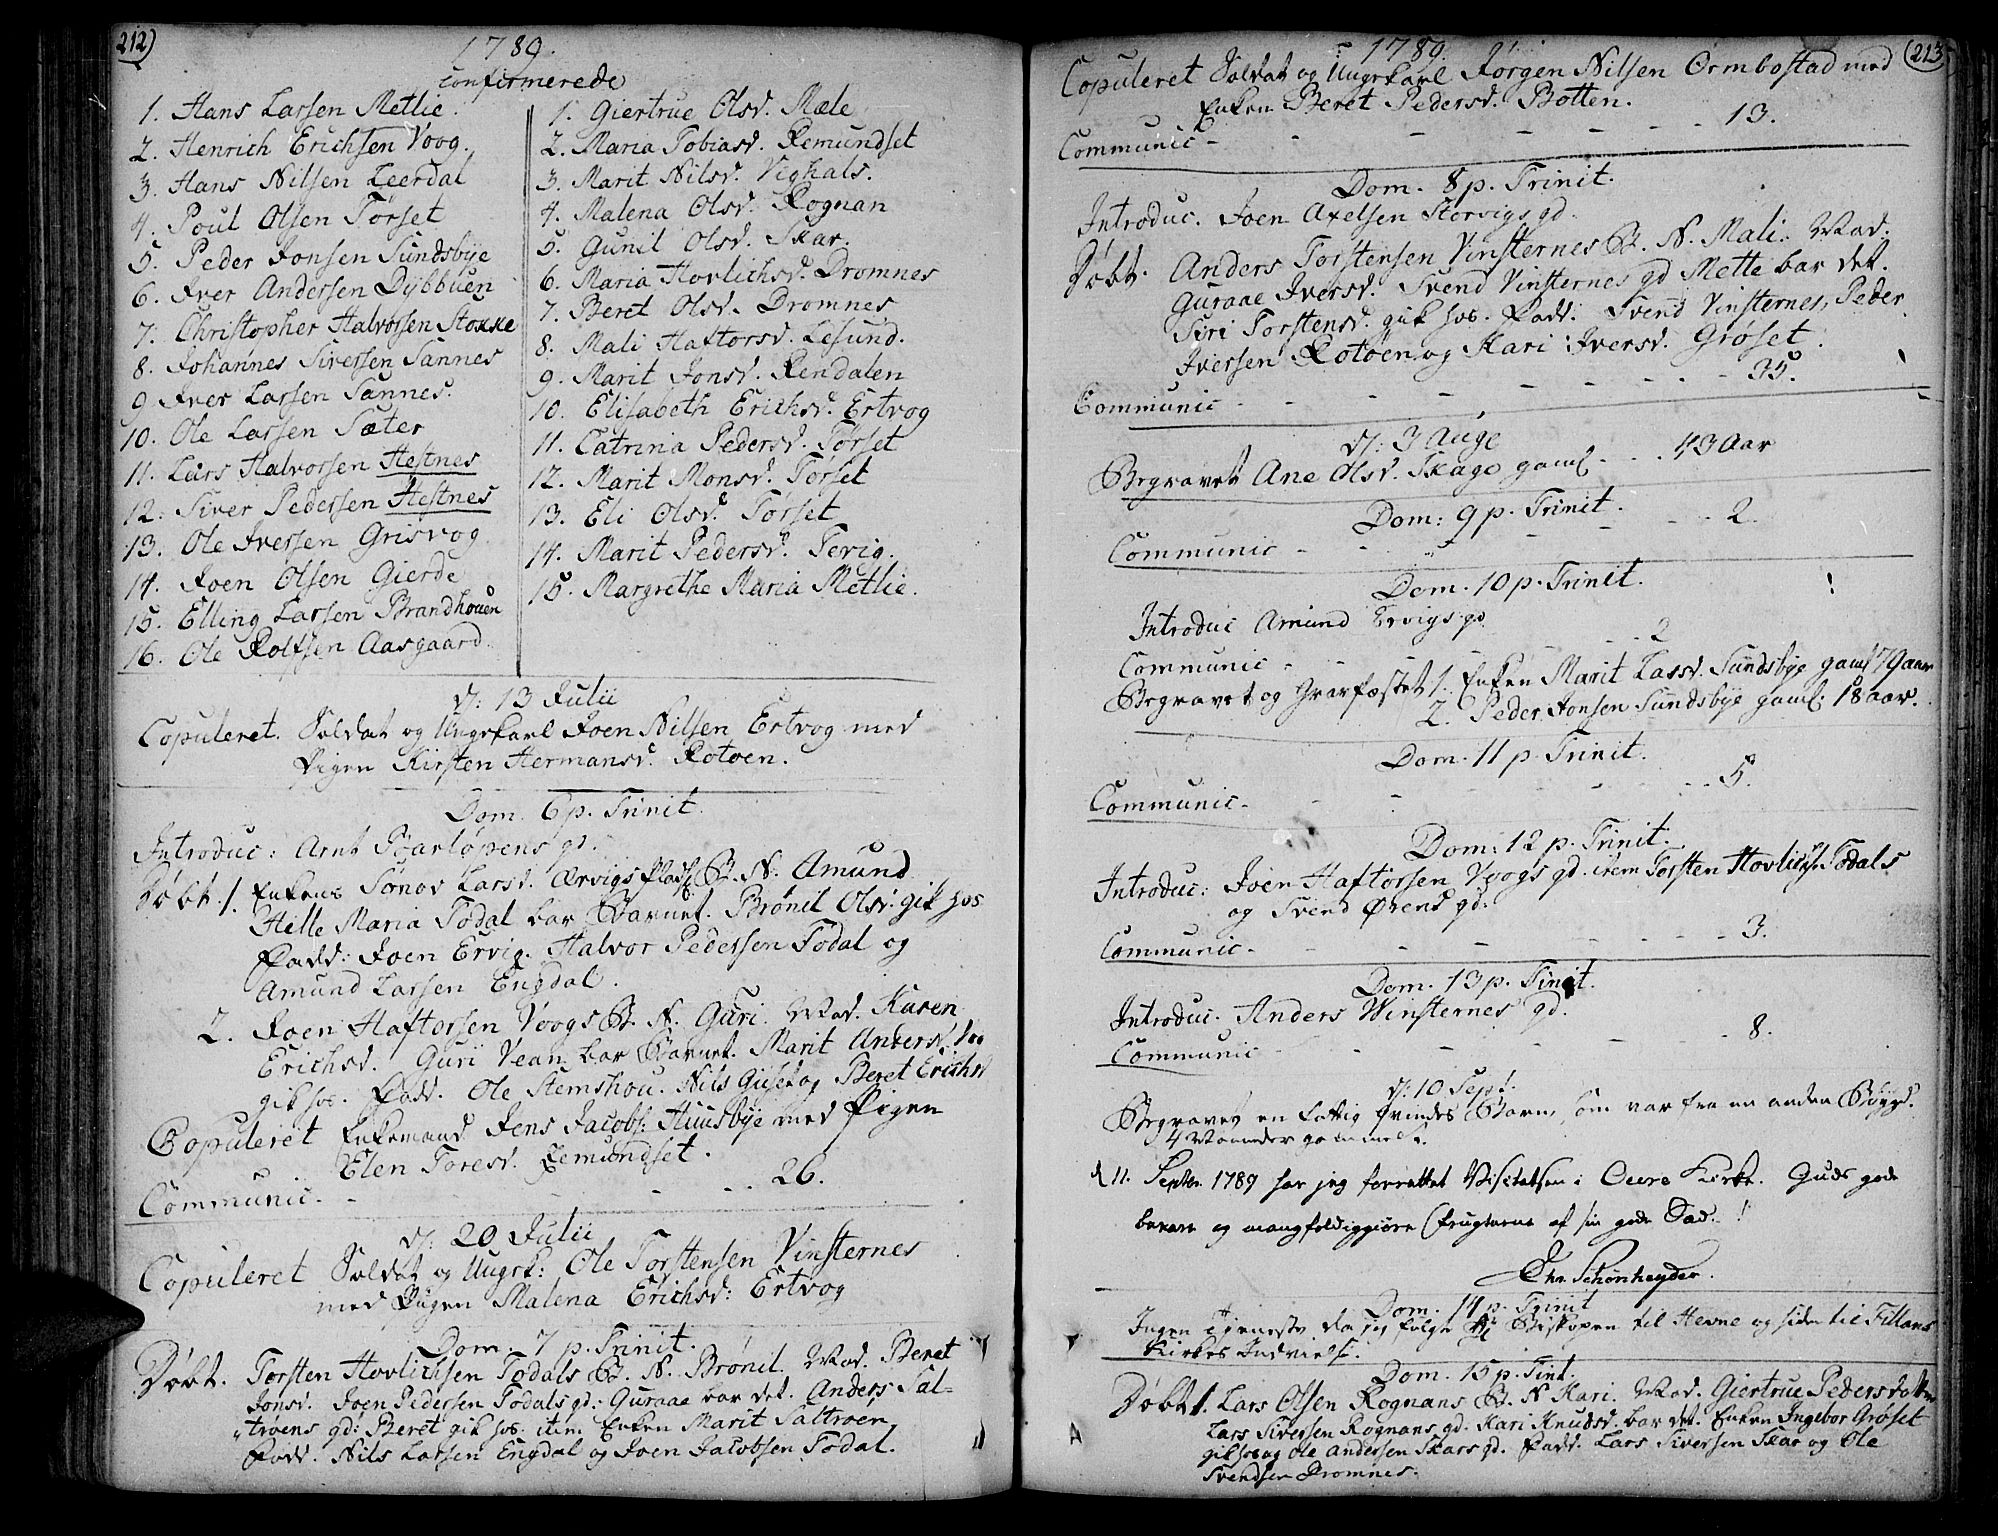 212)
1789.
Confirmerede
1. Hans Larsen Metlie.
2. Henrich Erichsen Voog.
3. Hans Nilsen Leerdal
4. Poul Olsen Tørset
5. Peder Jonsen Sundsbye
6. Iver Andersen Dÿbbuen
7. Christopher Halvorsen Stokke
8. Johannes Siversen Sannes
9 Iver Larsen Sannes.
10. Ole Larsen Sæter
11. Lars Halvorsen Hestnes
12. Siver Pedersen Hestnes
13. Ole Iversen Grisvog
14. Joen Olsen Gierde
15. Elling Larsen Brandhouen
16. Ole Rolfsen Aasgaard.
1. Giertrue Olsd. Mæle
2. Maria Tobiasd. Remundset
3. Marit Nilsd. Vighals.
4. Malena Olsd. Rognan
5. Gunil Olsd. Skar.
6. Maria Hovlichsd. Dromnes
7. Beret Olsd. Dromnes
8. Mali Haftorsd. Lesund.
9. Marit Jonsd. Rendalen
10. Elisabeth Erichsd. Ertvog
11. Catrina Pedersd. Tørset
12. Marit Monsd. Tørset
13. Eli Olsd. Tørset
14. Marit Pedersd. Tevig.
15. Margrethe Maria Metlie.
d: 13 Julii
Copuleret. Soldat og Ungekarl Joen Nilsen Ertvog med
Pigen Kirsten Hermansd. Rotøen.
Dom. 6 p. Trinit.
Introduc: Arnt Bjarløpens gd.
Døbt. 1. Enkens Sønov Larsd. Ærvigs Plads B. N. Amund
Hille Maria Todal bar Barnet. Brønil Olsd. gik hos
Fadd: Joen Ervig. Halvor Pedersen Todal og
Amund Larsen Engdal.
2. Joen Haftorsen Voogs B. N. Guri. Mod. Karen
Erichsd. Guri Vean bar Barnet. Marit Andersd.
gik hos. Fadd. Ole Stemshou. Nils Giset og Beret Erichsd
Copuleret Enkemand Jens Jacobs: Huusbye med Pigen
Elen Toresd. Remundset.
Communic. - - - - 26.
d: 20 Julii
Copuleret Soldat og Ungk: Ole Torstensen Vinsternes
med Pigen Malena Erichsd: Ertvog
Dom. 7 p. Trinit.
Døbt. Torsten Hovlichsen Todals B. N. Brønil. Mod. Beret
Jonsd. Joen Pedersen Todals gd: Guraae bar det. Anders Sal-
trøens gd: Beret gik hos. item Enken Marit Saltrøen
Fadd. Nils Larsen Engdal og Joen Jacobsen Todal.
(213
1789.
Copuleret Soldat og Ungekarl Jørgen Nilsen Ormbostad med
Enken Beret Pedersd. Botten.
Communic - - - - 13.
Dom. 8 p. Trinit.
Introduc. Joen Axelsen Storvigs gd.
Døbt. Anders Torstensen Vinsternes B. N. Mali. Mod.
Guraae Iversd. Svend Vinsternes gd Mette bar det.
Siri Torstensd. gik hos. Fadd: Svend Vinsternes, Peder
Iversen Rotøen og Kari Iversd. Grøset.
Communic - - - - 35.
d: 3 Auge
Begravet Ane Olsd. Skage gaml. - - 43 Aar
Dom: 9 p. Trinit.
Communic - - - - 2.
Dom. 10 p. Trinit.
Introduc Amund Ervigs gd
Communic - - - - 2
Begravet og Gravfæstet 1. Enken Marit Lassd. Sundsbye gaml 79 aar
2. Peder Jonsen Sundsbye gaml. 18 aar.
Dom. 11 p. Trinit.
Communic - - - - 5.
Dom: 12 p. Trinit.
Introduc: Joen Haftorsen Voogs gd. item Torsten Hovlichs. Todals
og Svend Ørens gd:
Communic - - - - 3.
Dom. 13 p. Trinit.
Introduc. Anders Winsternes gd.
Communic - - - - 8.
d: 10 Sept.
Begravet en fattig Qvindes Barn, som var fra en anden Bøygd.
4 Maaneder gammel.
d 11. Septbr. 1789 har jeg forrettet Visitatsen i Oure Kirke. Gud
bevare og mangfoldiggiøre Frugterne af sin gode Sæd!
Chr. Schønheyder.
Dom. 14 p. Trinit
Ingen Tjeneste da jeg fulgte Hr Biskopen til Hevne og siden til Fillans
Kirkes Indvielse.
Dom. 15 p. Trint.
Døbt 1. Lars Olsen Rognans B. N Kari. Mod. Giertrue Pedersdatter
Lars Sivertsen Rognans gd. Kari Knudsd. bar det. Enken Ingebor Grøset
gik hos og Ole Andersen Skars gd. Fadd. Lars Siversen Skar og Ole
Svendsen Dromnes.